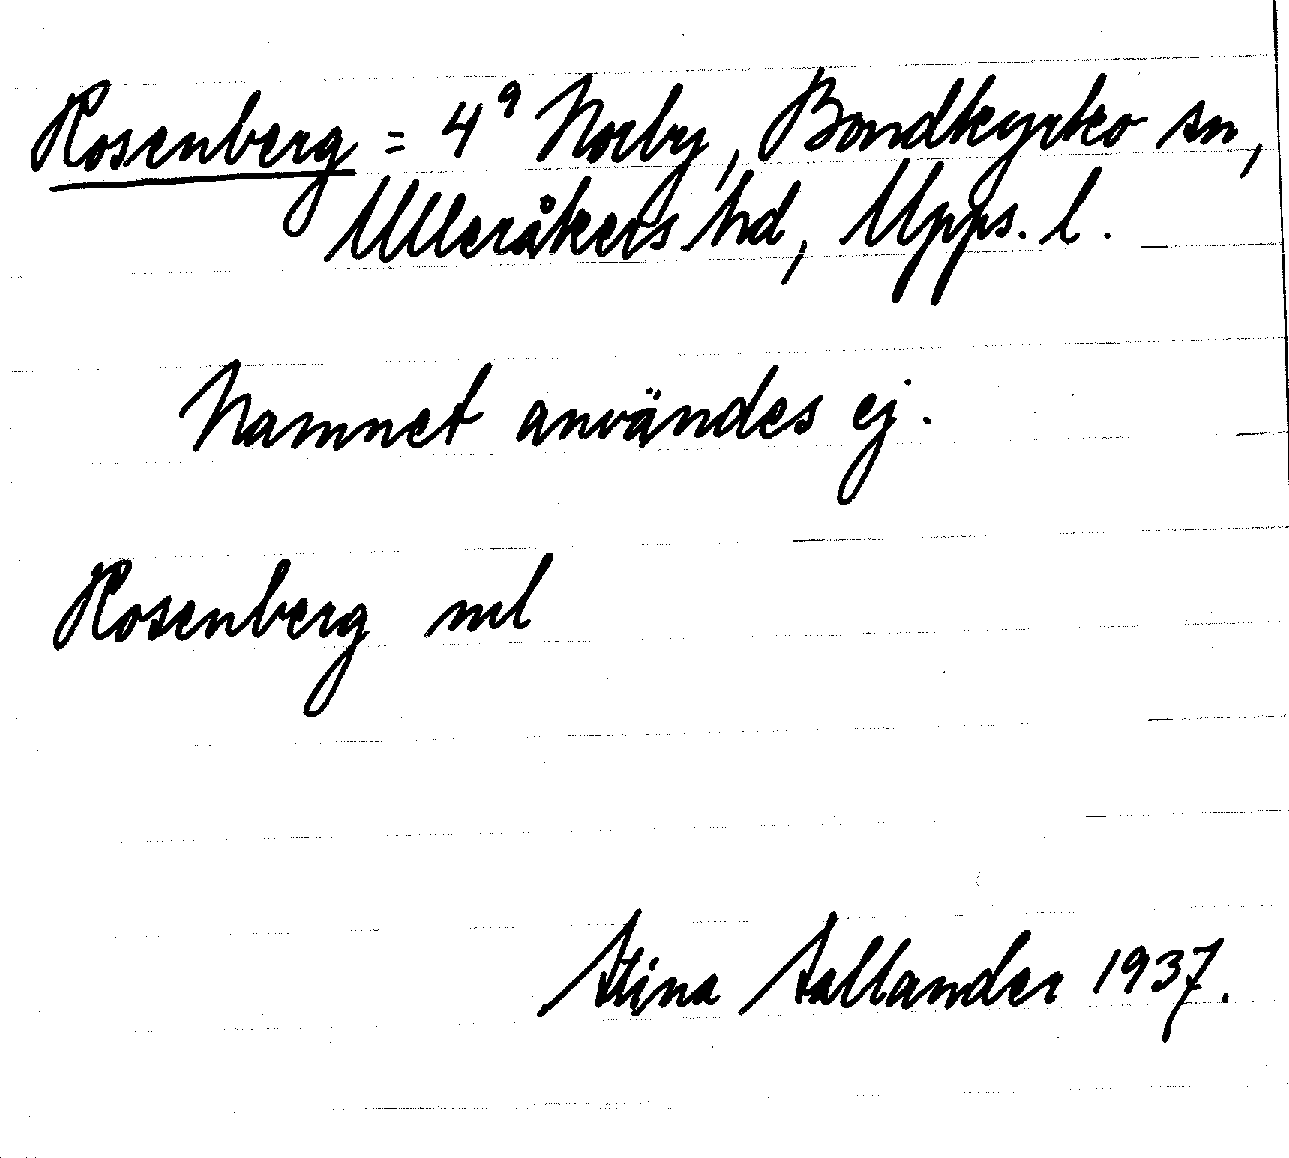 Rosenberg = 4⁹ Norby, Bondkyrko sn,
Ulleråkers hd, Upps. l.
Namnet användes ej.
Rosenberg ml
Stina Sallander 1937.